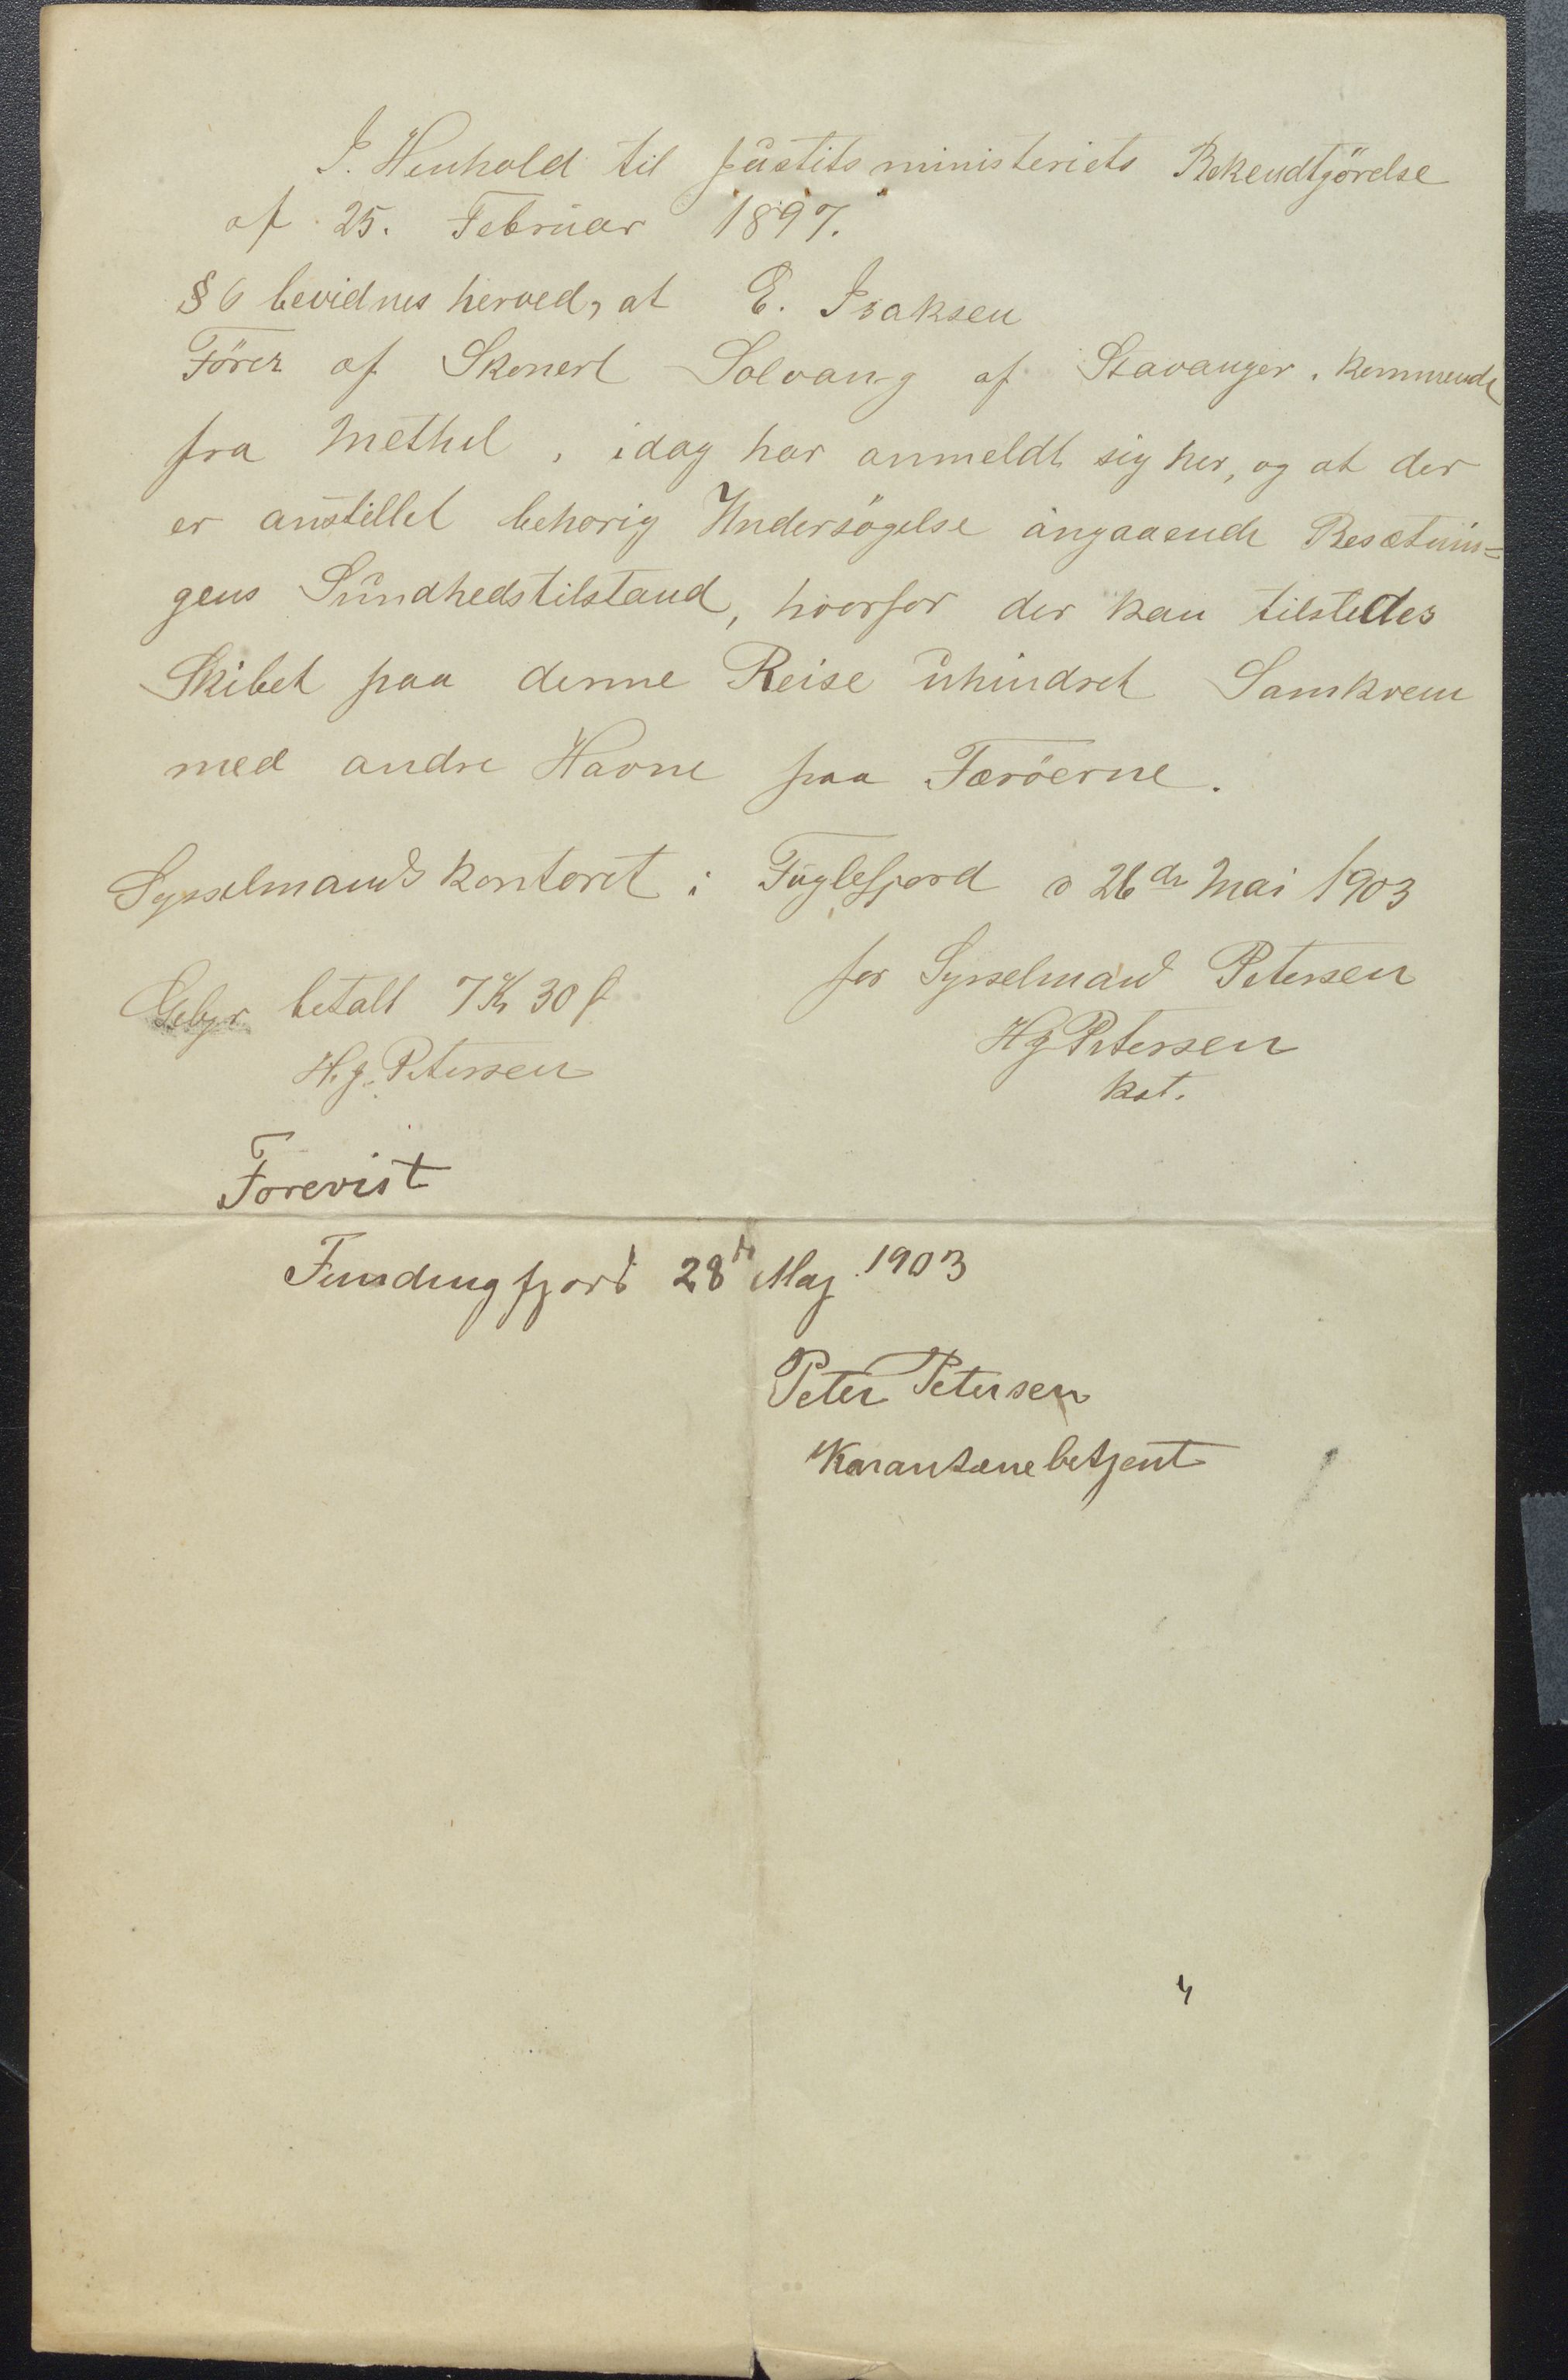 I. Henhold til Justitsministeriets Bekendtgörelse
af 25. Februar 1897.
§ 6 bevidnes herved, at E. Isaksen
Förer af Skonert Solvang af Stavanger. kommende
fra Methil, idag har anmeldt sig her, og at der
er anstillet behorig Undersögelse angaaende Besætnin=
gens Sundhedstilstand, hvorfor der kan tilstedes
Skibet paa denne Reise uhindret Samkvem
med andre Havne paa Færöerne.
Sysselmandskontoret i Fuglefjord d 26de Mai 1903
for Sysselmand Petersen
Gebyr betalt 7 Kr 30 ø
HJ Petersen
H.J. Petersen
kst.
Forevist
Fundingfjord 28de Maj 1903
Peter Petersen
Karantænebetjent